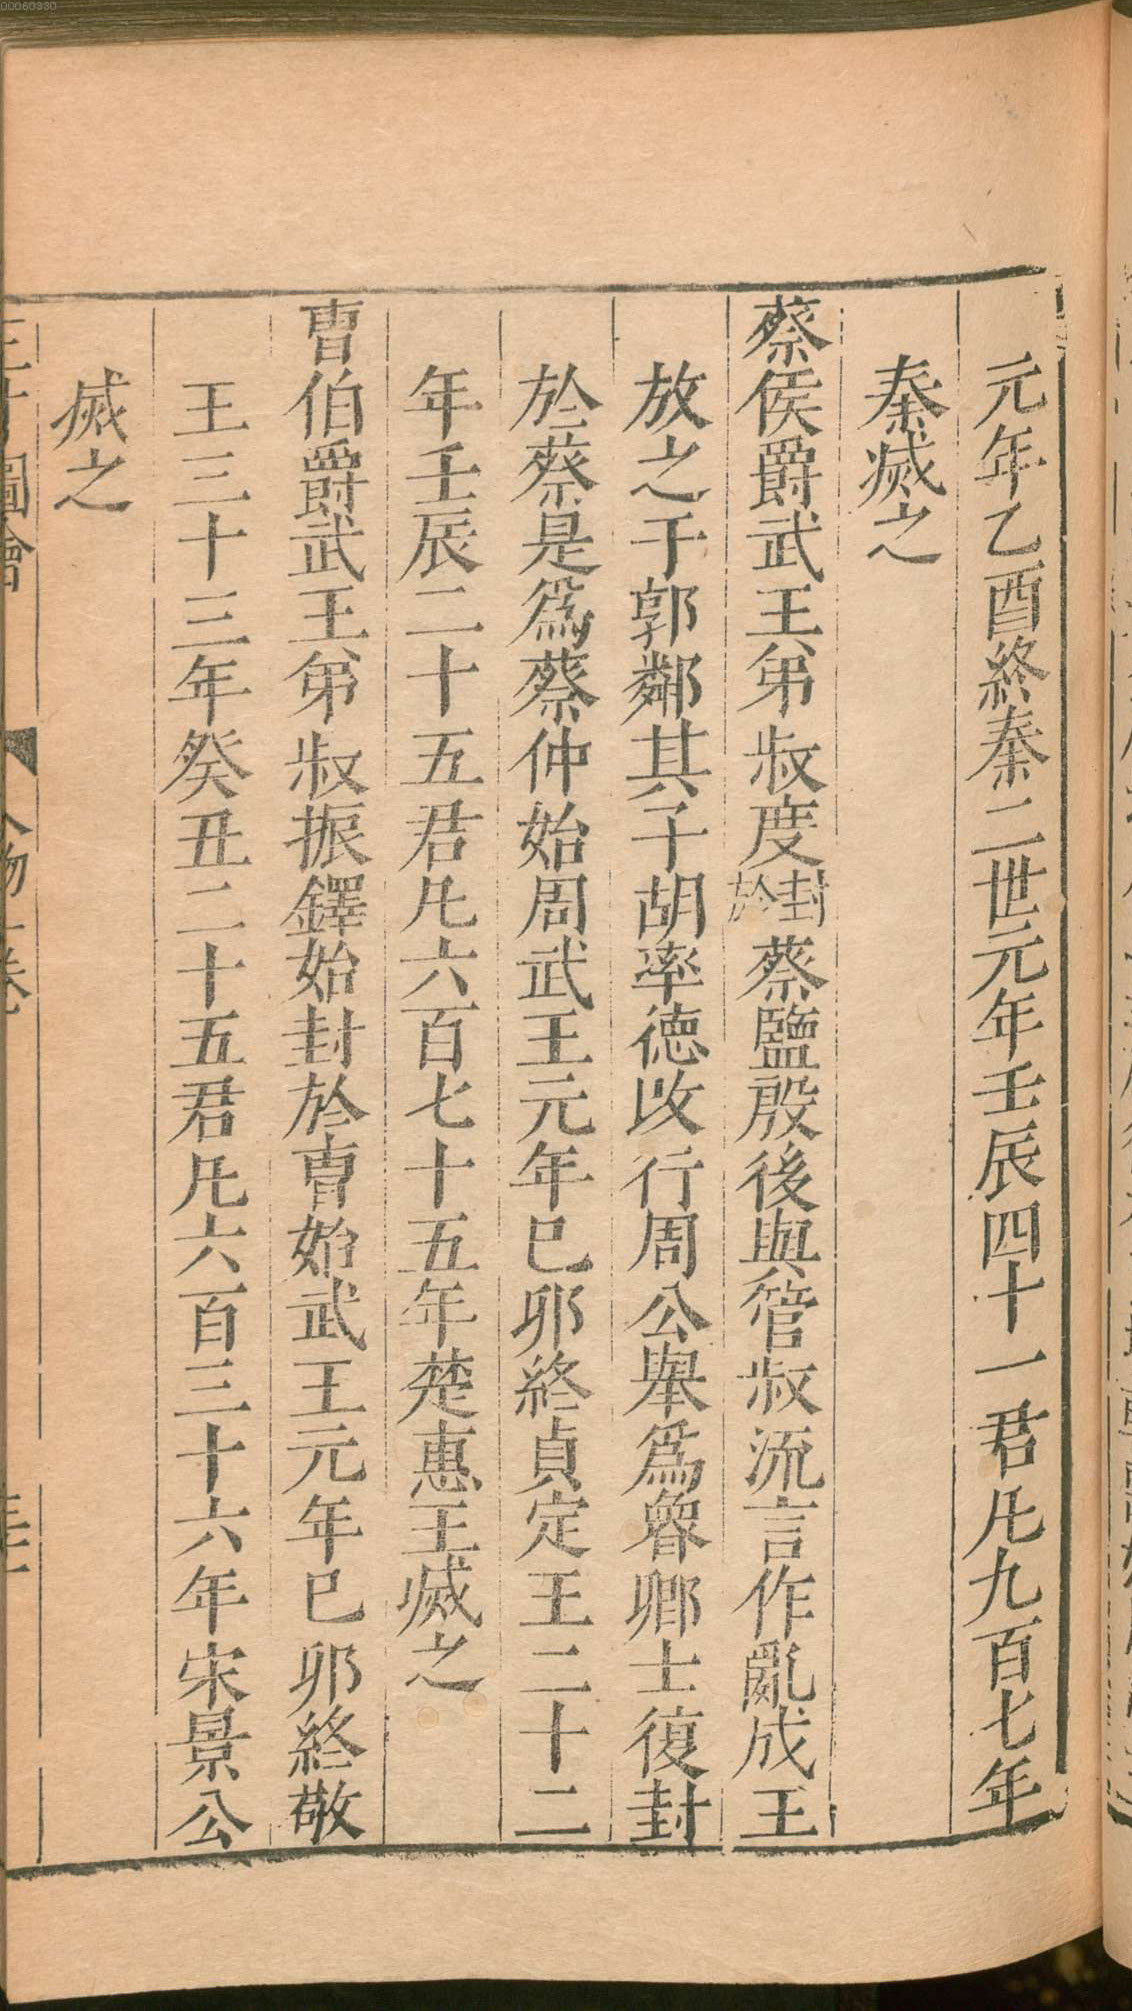 元年乙酉終秦二世元年壬辰四十一君凡九百七年
秦滅之
蔡侯爵武王弟叔度封於蔡鹽殷後與管叔流言作亂成王
放之于郭鄰其子胡率德改行周公舉爲魯卿士復封
於蔡是爲蔡仲始周武王元年巳卯終貞定王二十二
年壬辰二十五君凡六百七十五年楚惠王滅之
曹伯爵武王弟叔振鐸始封於曹始武王元年巳卯終敬
王三十三年癸丑二十五君凡六百三十六年宋景公
滅之
三才圖會
人物一卷
00060330